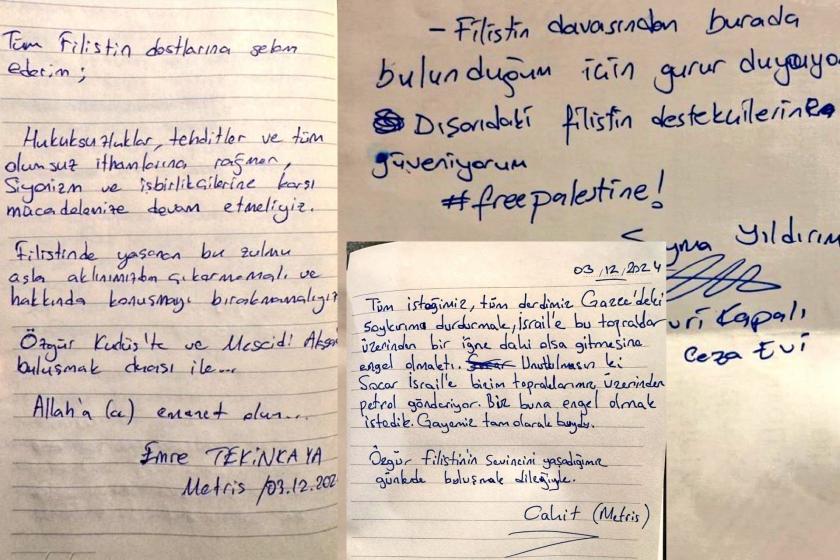 Tüm Filistin dostlarına selam
ederim;
Hukuksuzluklar, tehditler ve tüm
olumsuz ithamlarına rağmen,
Siyonizm ve işbirlikçilerine karşı
mücadelemize devam etmeliyiz.
Filistinde yaşanan bu zulmü
asla aklımızdan çıkarmamalı ve
hakkında konuşmayı bırakmamalıyız
Özgür Kudüs'te ve Mescidi Aksa
buluşmak duası ile...
Allah'a (cc) emanet olun...
Emre TEKİNKAYA
Metris /03.12.202
- Filistin davasından burada
bulunduğum için gurur duyuyo
Dışarıdaki filistin destekçilerine
güveniyorum
#freepalestine!
Yıldırım
Kapalı
Ceza Evi
03/12/2024
Tüm isteğimiz, tüm derdimiz Gazze'deki
soykırımı durdurmak, İsrail'e bu topraklar
üzerinden bir iğne dahi olsa gitmesine
engel olmaktı. Unutulmasın ki
Socar İsrail'e bizim topraklarımız üzerinden
petrol gönderiyor. Biz buna engel olmak
istedik. Gayemiz tam olarak buydu.
Özgür Filistinin sevincini yaşadığımız
günlerde buluşmak dileğiyle.
Cahit (Metris)